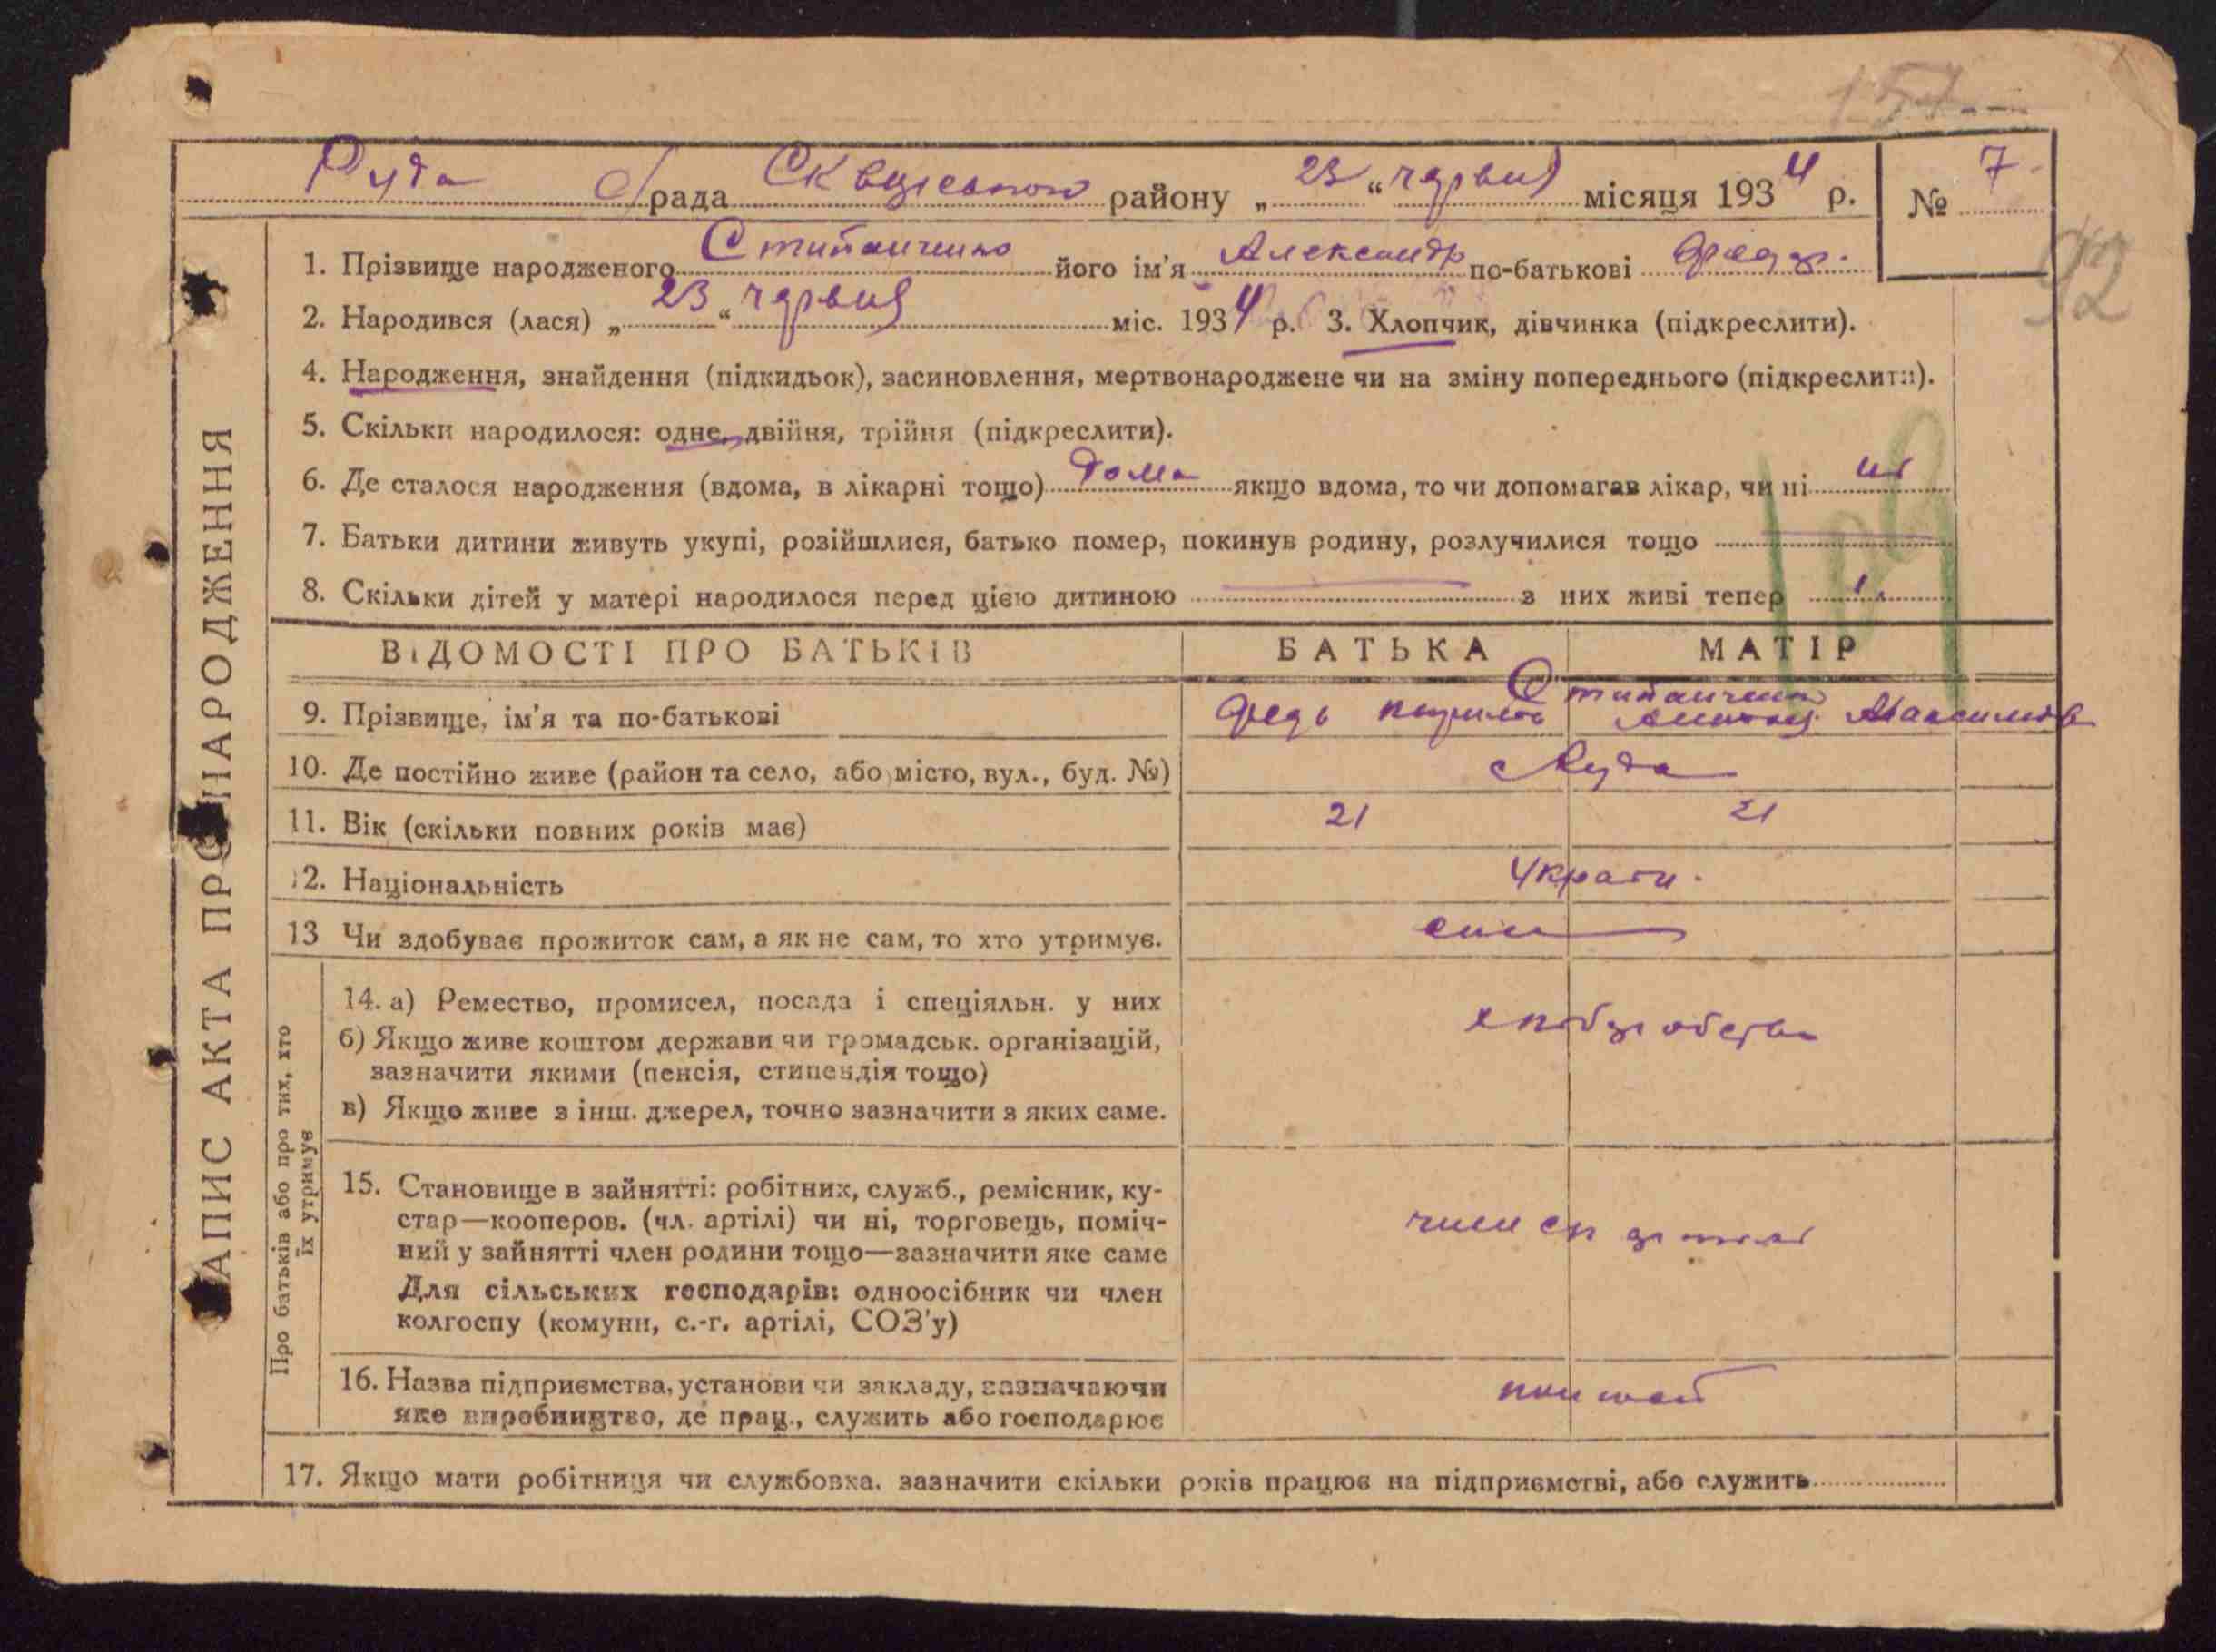 157
Руда с/рада Сквирського району „23“ червня місяця 1934 р. № 7
92
1. Прізвище народженого Стипанченко його ім'я Александр по-батькові Федор.
2. Народився (лася) „23“ червня міс. 1934 р. 3. Хлопчик, дівчинка (підкреслити).
4. Народження, знайдення (підкидьок), засиновлення, мертвонароджене чи на зміну попереднього (підкреслити).
5. Скільки народилося: одне, двійня, трійня (підкреслити).
6. Де сталося народження (вдома, в лікарні тощо) дома якщо вдома, то чи допомагав лікар, чи ні ні
7. Батьки дитини живуть укупі, розійшлися, батько помер, покинув родину, розлучилися тощо
8. Скільки дітей у матері народилося перед цією дитиною з них живі тепер 1.
109
ВІДОМОСТІ ПРО БАТЬКІВ БАТЬКА МАТІР
Стипанченко
9. Прізвище, ім'я та по-батькові Федь Максимов
10. Де постійно живе (район та село, або місто, вул., буд. №) Руда
11. Вік (скільки повних років має) 21 21
12. Національність Україн.
13 Чи здобуває прожиток сам, а як не сам, то хто утримує. сам
14. а) Ремество, промисел, посада і спеціяльн. у них хлібообство
б) Якщо живе коштом держави чи громадськ. організацій,
зазначити якими (пенсія, стипендія тощо)
в) Якщо живе з інш. джерел, точно зазначити з яких саме.
15. Становище в зайнятті: робітник, служб., ремісник, ку-
стар—кооперов. (чл. артілі) чи ні, торговець, поміч-
ний у зайнятті член родини тощо—зазначити яке саме
Для сільських господарів: одноосібник чи член
колгоспу (комуни, с.-г. артілі, СОЗ'у)
16. Назва підприємства, установи чи закладу, зазначаючи
яке виробництво, де прац., служить або господарює
17. Якщо мати робітниця чи службовка, зазначити скільки років працює на підприємстві, або служить
ЗАПИС АКТА ПРО НАРОДЖЕННЯ
Про батьків або про тих, хто
їх утримує